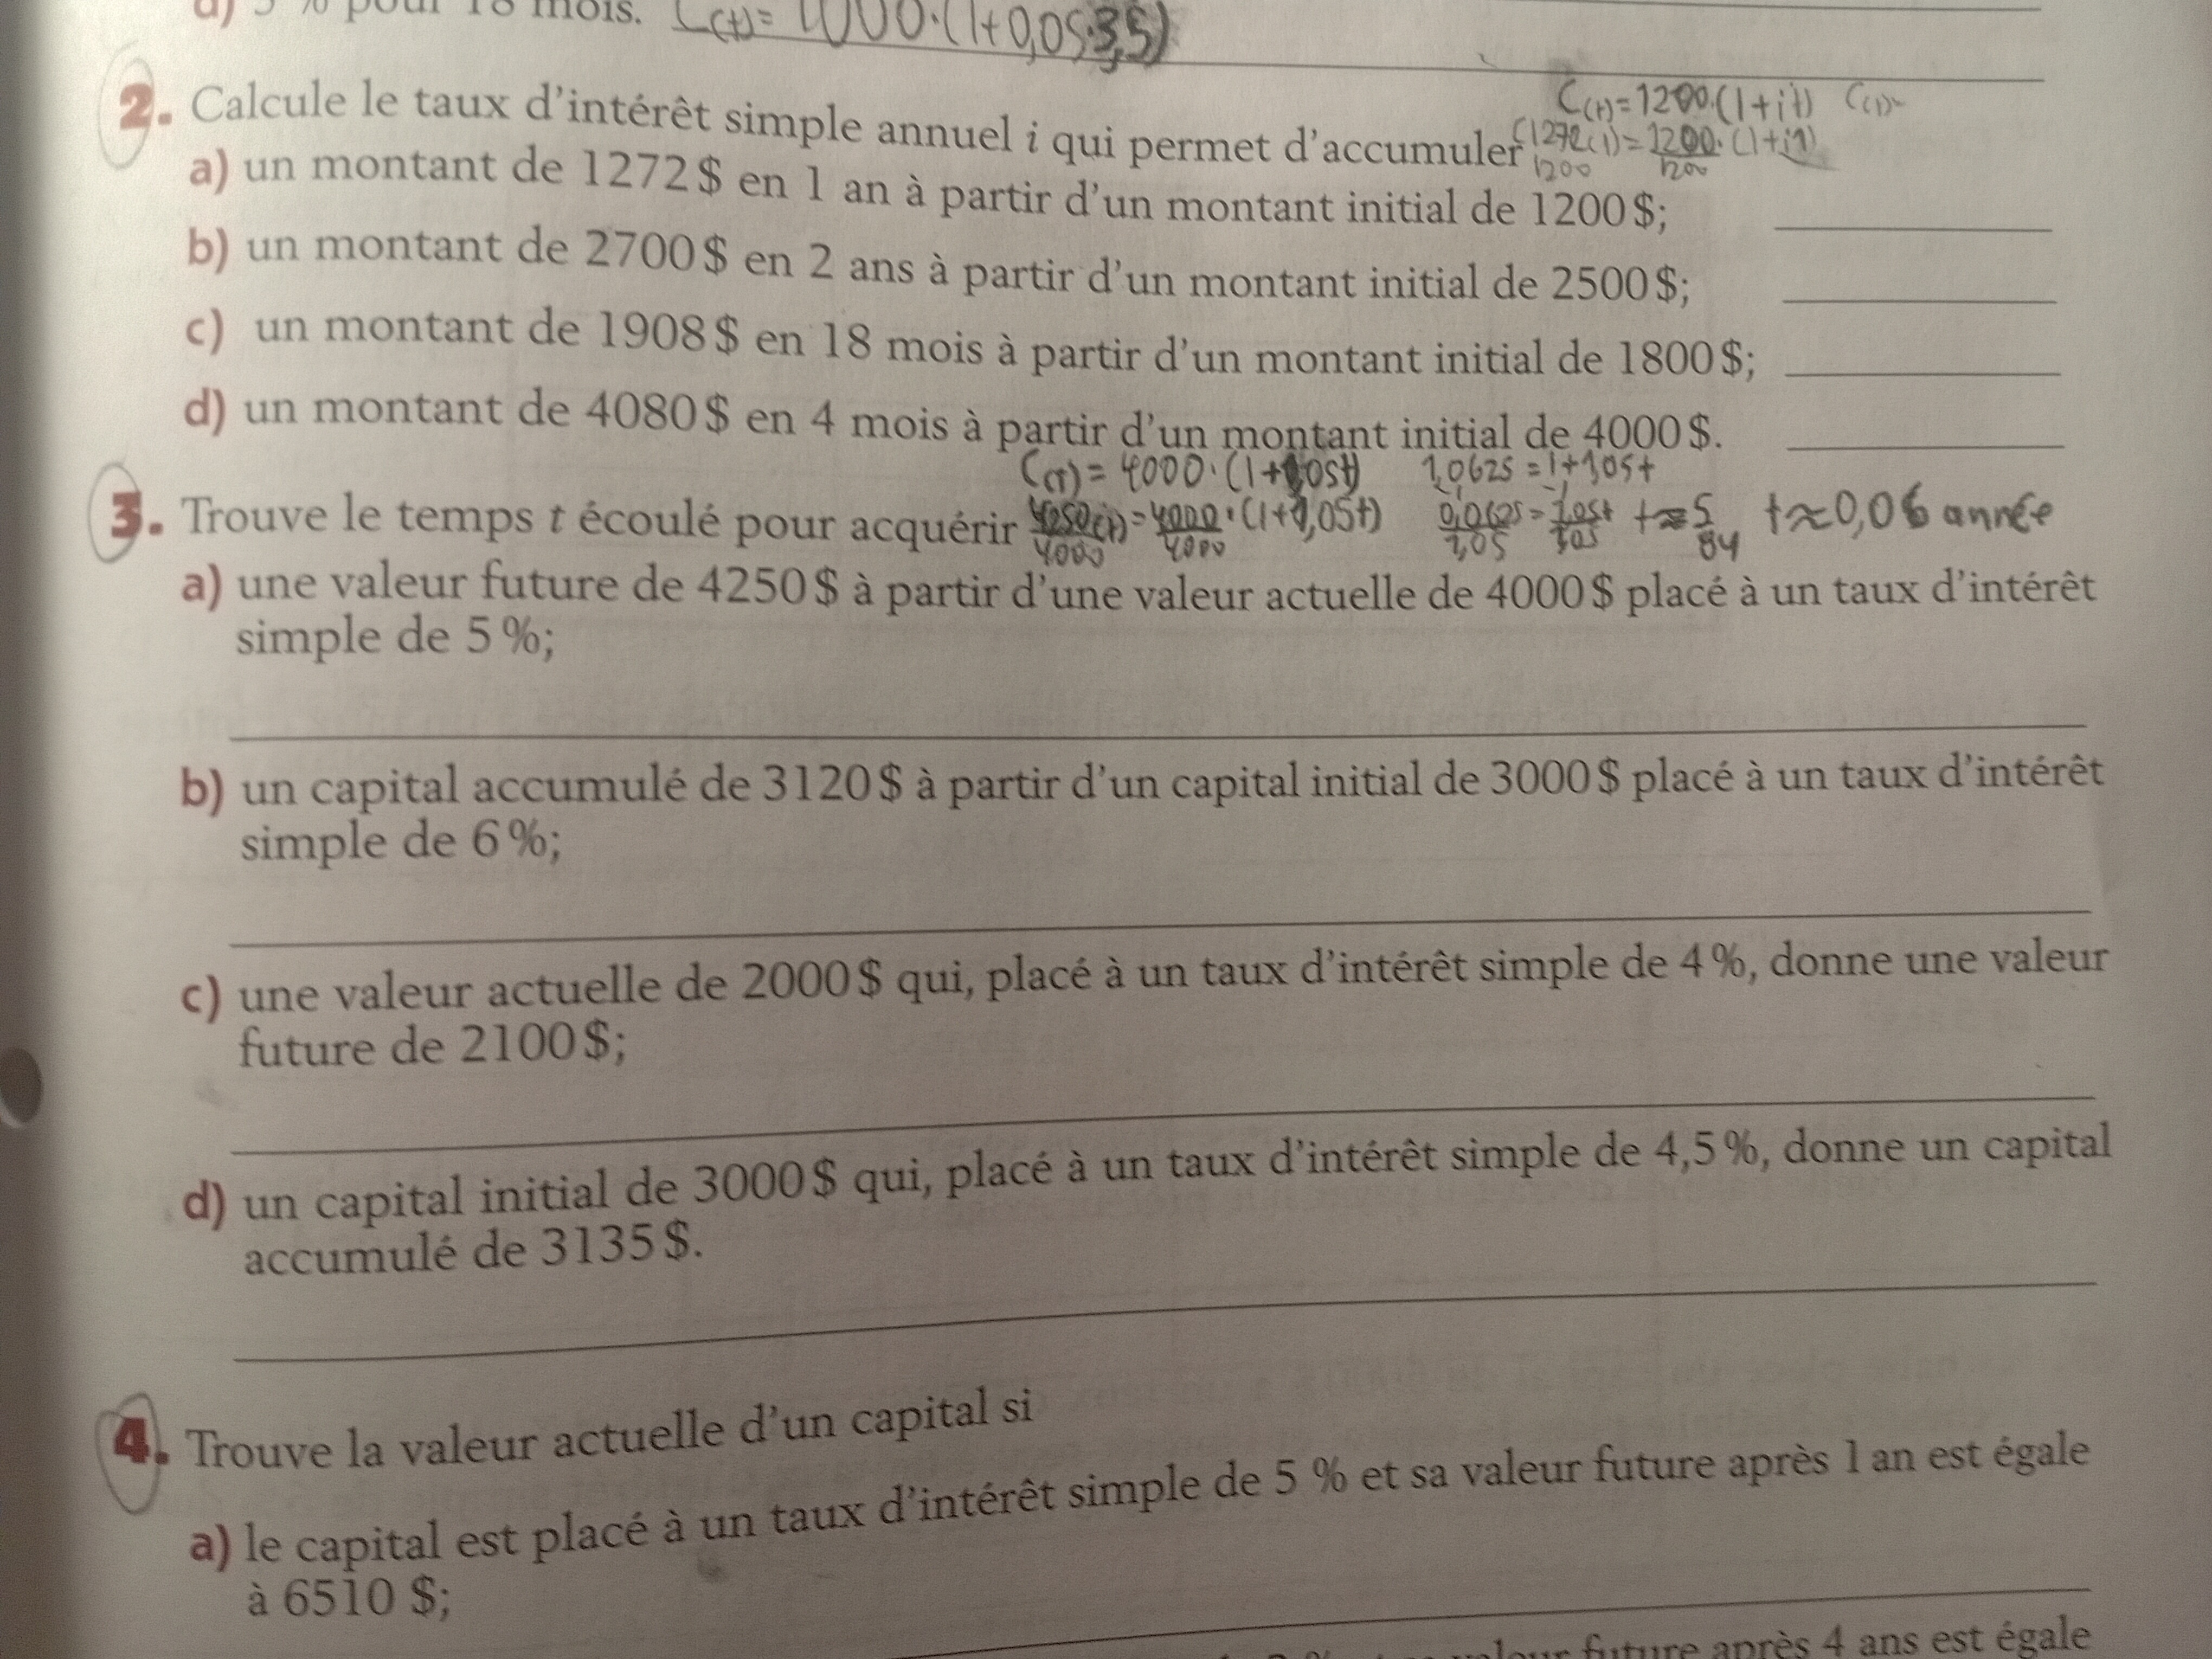 d) 5 % pour 18 mois. C(t)= 1000·(1+0,05·3,5)
C(t)=1200·(1+it) C(1)=
2. Calcule le taux d'intérêt simple annuel i qui permet d'accumuler 1272(1)=1200·(1+i1)
1200 1200
a) un montant de 1272 $ en 1 an à partir d'un montant initial de 1200 $;
b) un montant de 2700 $ en 2 ans à partir d'un montant initial de 2500 $;
c) un montant de 1908 $ en 18 mois à partir d'un montant initial de 1800 $;
d) un montant de 4080 $ en 4 mois à partir d'un montant initial de 4000 $.
C(t) = 4000·(1+1,05t) 1,0625 = 1+1,05t
-1 -1
3. Trouve le temps t écoulé pour acquérir 4250(t)=4000·(1+1,05t) 0,0625=1,05t t≈5 t≈0,06 année
4000 4000 1,05 1,05 84
a) une valeur future de 4250 $ à partir d'une valeur actuelle de 4000 $ placé à un taux d'intérêt
simple de 5 %;
b) un capital accumulé de 3120 $ à partir d'un capital initial de 3000 $ placé à un taux d'intérêt
simple de 6 %;
c) une valeur actuelle de 2000 $ qui, placé à un taux d'intérêt simple de 4 %, donne une valeur
future de 2100 $;
d) un capital initial de 3000 $ qui, placé à un taux d'intérêt simple de 4,5 %, donne un capital
accumulé de 3135 $.
4. Trouve la valeur actuelle d'un capital si
a) le capital est placé à un taux d'intérêt simple de 5 % et sa valeur future après 1 an est égale
à 6510 $;
valeur future après 4 ans est égale